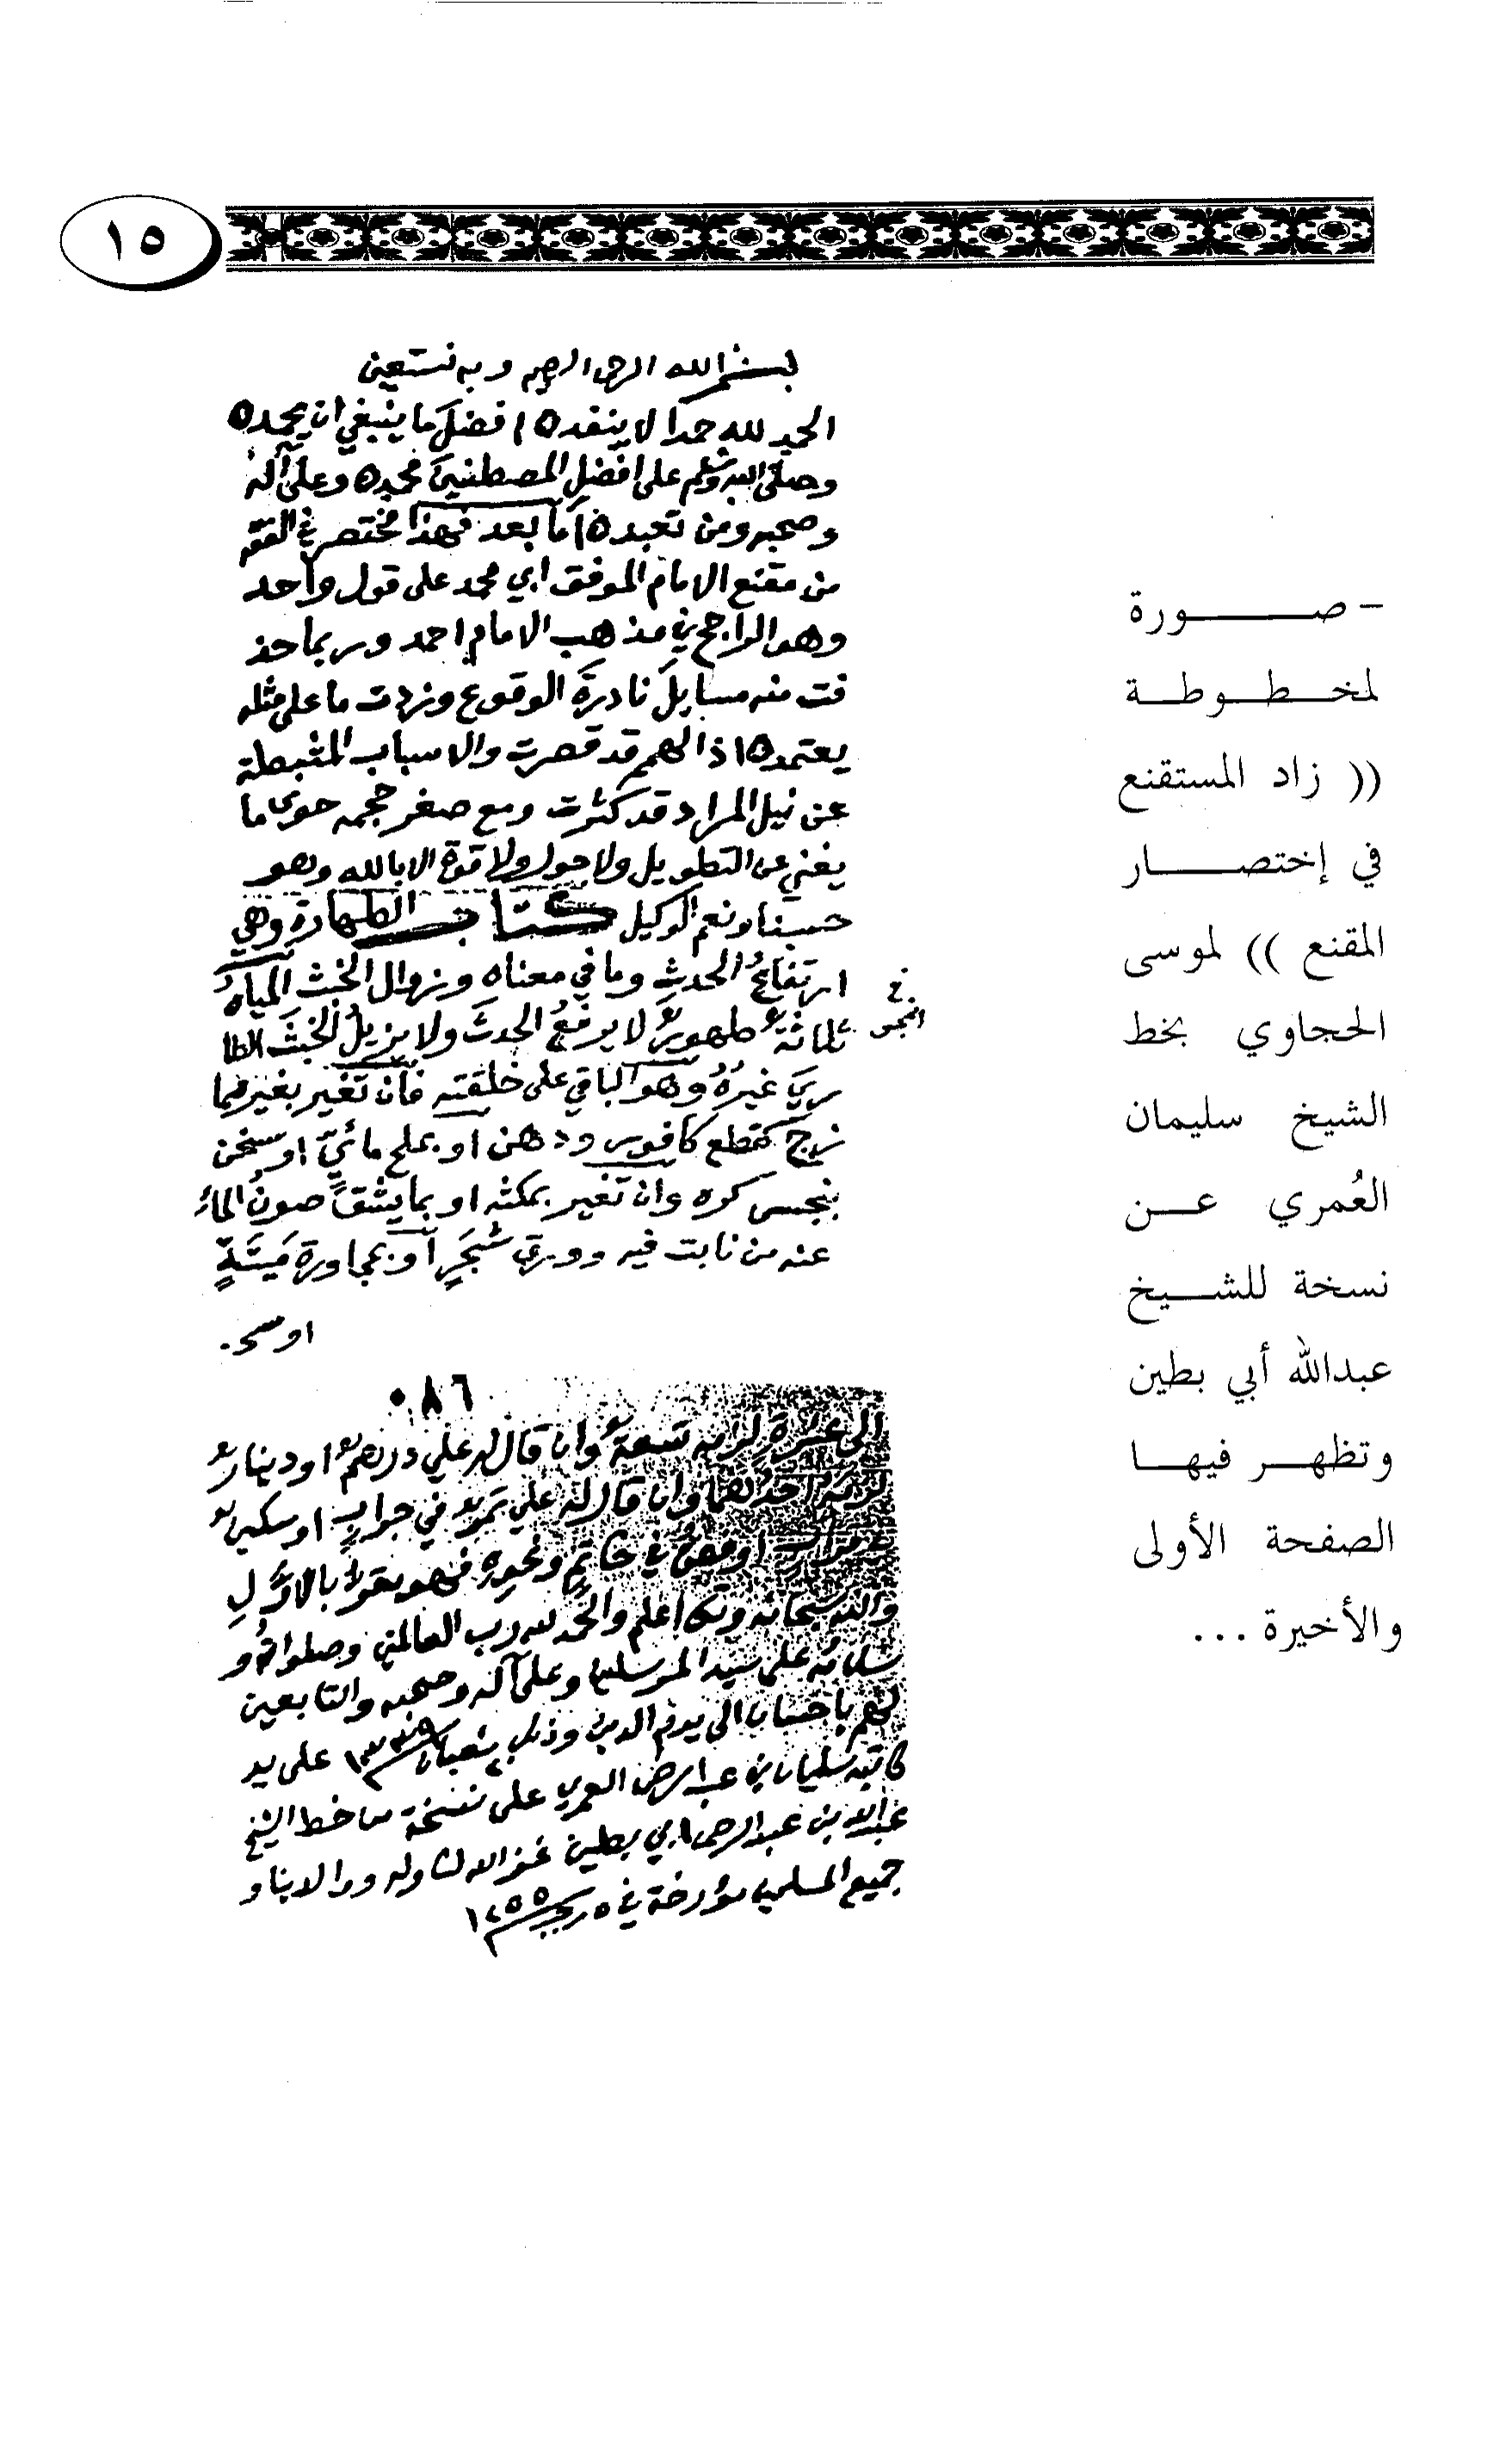 ١٥
بسم الله الرحمن الرحيم وبه نستعين
الحمد لله حمدا لا ينفد ٥ افضل ما ينبغي ان يحمد ٥
وصلى الله وسلم على افضل المصطفين محمد ٥ وعلى آله
وصحبه ومن تعبد ٥ أما بعد فهذا مختصر في الفقه
من مقنع الامام الموفق ابي محمد على قول واحد
وهو الراجح في مذهب الامام احمد وربما حذ
فت منه مسايل نادرة الوقوع وزدت ما على مثله
يعتمد ٥ اذ الهمم قد قصرت والاسباب المثبطة
عن نيل المراد قد كثرت ومع صغر حجمه حوى ما
يغني عن التطويل ولا حول ولا قوة الا بالله وهو
حسبنا ونعم الوكيل كتاب الطهارة وهي
ارتفاع الحدث وما في معناه وزوال الخبث المياه
ثلاثة طهور لا يرفع الحدث ولا يزيل الخبث الطا
ري غيره وهو الباقي على خلقته فان تغير بغير مما
زج كقطع كافور ودهن او بملح مائي او سخن
بنجس كره وان تغير بمكثه او بما يشق صون الماء
عنه من نابت فيه وورق شجر او بمجاورة ميتة
او سخ
٠٨٦
الى عشرة لزمه تسعة وان قال له علي درهم او دينار
لزمه احدهما وان قال له علي تمر في جراب او سكين
في قراب او فص في خاتم ونحوه فهو مقر بالاول
والله سبحانه وتعالى اعلم والحمد لله رب العالمين وصلواته و
سلامه على سيد المرسلين وعلى آله وصحبه والتابعين
لهم باحسان الى يوم الدين وذلك شعبان ١٣٣٩ على يد
كاتبه سليمان بن عبدالرحمن العمري على نسخة من خط الشيخ
عبدالله بن عبدالرحمن ابي بطين غفر الله لنا وله ووالدينا و
جميع المسلمين مؤرخة في ٥ رجب ١٢٥٥
– صورة
لمخطوطة
(( زاد المستقنع
في إختصار
المقنع )) لموسى
الحجاوي بخط
الشيخ سليمان
العُمري عن
نسخة للشيخ
عبدالله أبي بطين
وتظهر فيها
الصفحة الأولى
والأخيرة ...